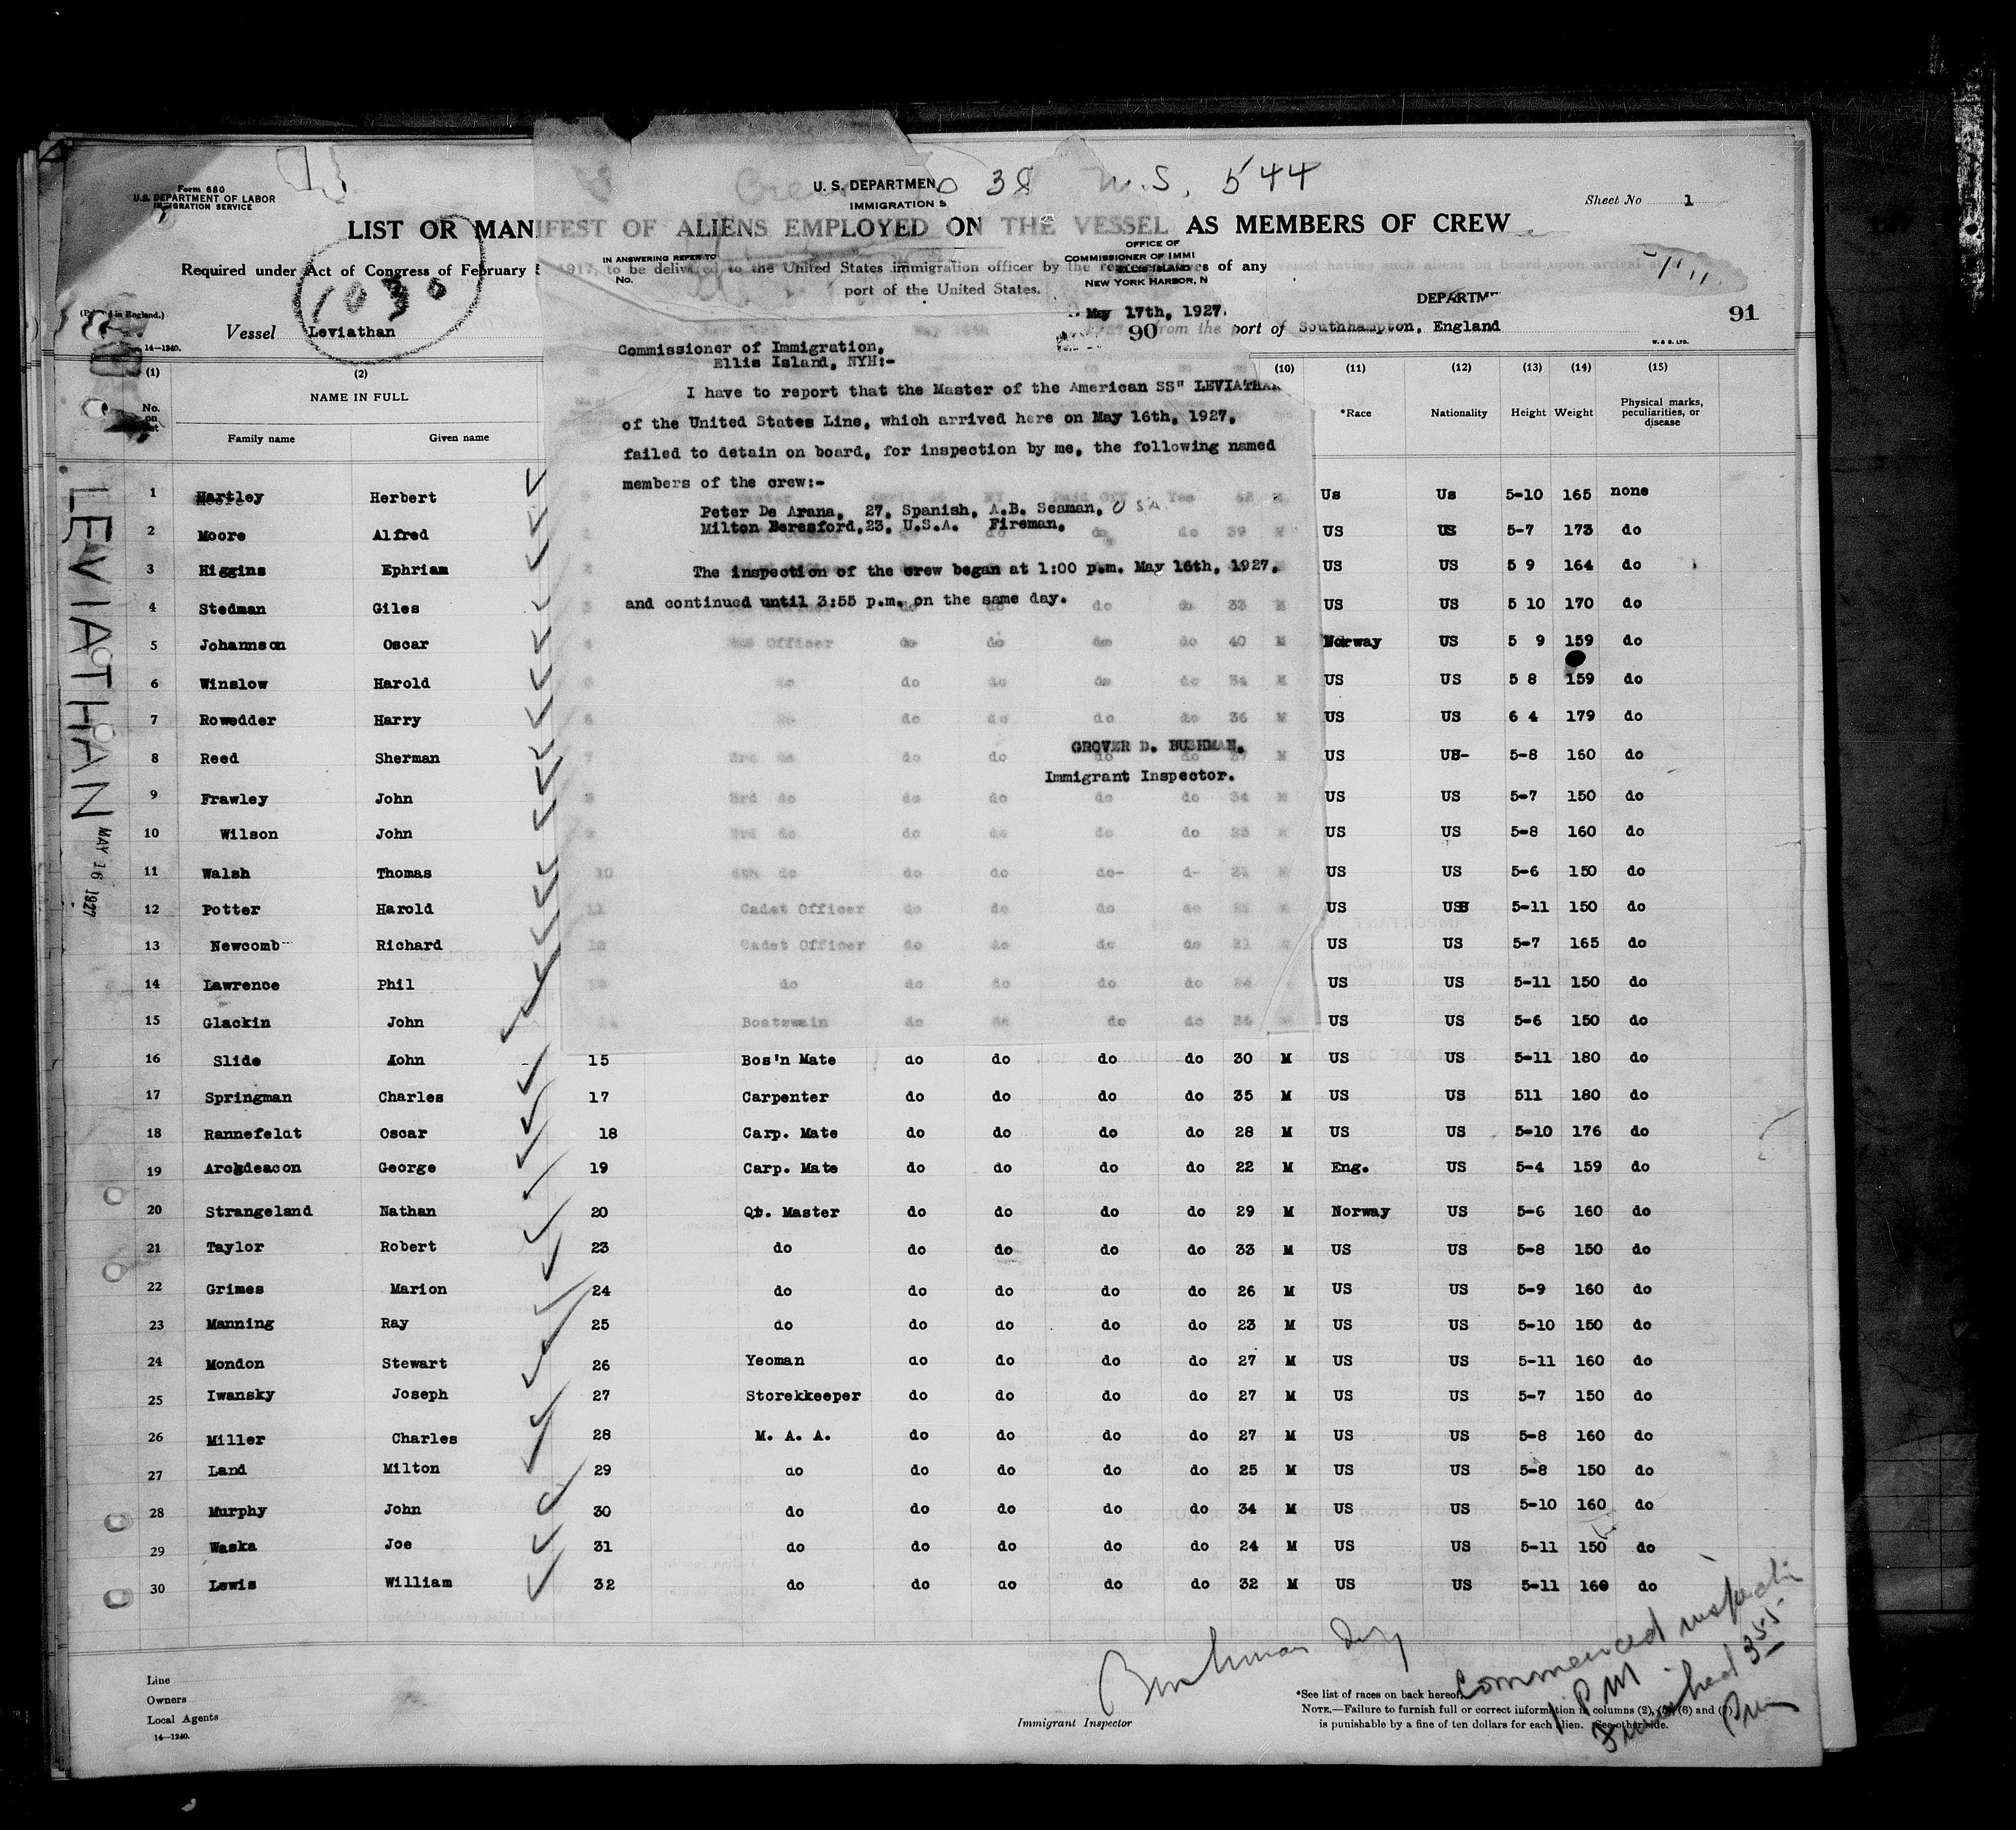 Form 680
U.S. DEPARTMENT OF LABOR
IMMIGRATION SERVICE
U. S. DEPARTMEN
IMMIGRATION S
38 U.S. 544
Sheet No 1
LIST OR MANIFEST OF ALIENS EMPLOYED ON THE VESSEL AS MEMBERS OF CREW
Required under Act of Congress of February 5 1917, to be delivered to the United States immigration officer by the representatives of any vessel having such aliens on board upon arrival
port of the United States.
IN ANSWERING REFER TO
No.
OFFICE OF
COMMISSIONER OF IMMI
ELLIS ISLAND
NEW YORK HARBOR, N
1030
DEPARTM
May 17th, 1927.
90
91
(Printed in England.)
14—1240.
Vessel Leviathan
from the port of Southhampton, England
W. & S. LTD.
Commissioner of Immigration,
Ellis Island, NYH:-
I have to report that the Master of the American SS" LEVIATHAN
of the United States Line, which arrived here on May 16th, 1927,
failed to detain on board, for inspection by me, the following named
members of the crew:-
Peter De Arana, 27, Spanish, A.B. Seaman,
Milton Beresford,23, U.S.A. Fireman,
The inspection of the crew began at 1:00 p.m. May 16th, 1927,
and continued until 3:55 p.m. on the same day.
GROVER D. BUSHMAN.
Immigrant Inspector.
LEVIATHAN
MAY 16 1927
(1) (2) (10) (11) (12) (13) (14) (15)
No. on list
NAME IN FULL
Family name Given name
*Race Nationality Height Weight Physical marks, peculiarities, or disease
1 Hartley Herbert Us Us 5-10 165 none
2 Moore Alfred do 39 US US 5-7 173 do
3 Higgins Ephriam US US 5 9 164 do
4 Stedman Giles do do 33 M US US 5 10 170 do
5 Johannson Oscar Officer do do do do 40 M Norway US 5 9 159 do
6 Winslow Harold do do do do do 34 M US US 5 8 159 do
7 Rowedder Harry do do do do 36 M US US 6 4 179 do
8 Reed Sherman do do do 37 M US US- 5-8 160 do
9 Frawley John 3rd do do do do do 34 M US US 5-7 150 do
10 Wilson John 3rd do do do do do M US US 5-8 160 do
11 Walsh Thomas 10 do do do do- d- US US 5-6 150 do
12 Potter Harold 11 Cadet Officer do do do do US US 5-11 150 do
13 Newcomb Richard 12 Cadet Officer do do do do 21 US US 5-7 165 do
14 Lawrence Phil do do do do do US US 5-11 150 do
15 Glackin John 14 Boatswain do do do do US US 5-6 150 do
16 Slide Aohn 15 Bos'n Mate do do do do 30 M US US 5-11 180 do
17 Springman Charles 17 Carpenter do do do do 35 M US US 511 180 do
18 Rannefeldt Oscar 18 Carp. Mate do do do do 28 M US US 5-10 176 do
19 Archdeacon George 19 Carp. Mate do do do do 22 M Eng. US 5-4 159 do
20 Strangeland Nathan 20 Qt. Master do do do do 29 M Norway US 5-6 160 do
21 Taylor Robert 23 do do do do do 33 M US US 5-8 150 do
22 Grimes Marion 24 do do do do do 26 M US US 5-9 160 do
23 Manning Ray 25 do do do do do 23 M US US 5-10 150 do
24 Mondon Stewart 26 Yeoman do do do do 27 M US US 5-11 160 do
25 Iwansky Joseph 27 Storekkeeper do do do do 27 M US US 5-7 150 do
26 Miller Charles 28 M. A. A. do do do do 27 M US US 5-8 160 do
27 Land Milton 29 do do do do do 25 M US US 5-8 150 do
28 Murphy John 30 do do do do do 34 M US US 5-10 160 do
29 Waska Joe 31 do do do do do 24 M US US 5-11 150 do
30 Lewis William 32 do do do do do 32 M US US 5-11 160 do
Line
Owners
Local Agents
14—1240.
Bushman
Immigrant Inspector
Commenced inspection
1 PM
Finished 355
Pm
*See list of races on back hereof.
NOTE.—Failure to furnish full or correct information in columns (2), (5), (6) and (7)
is punishable by a fine of ten dollars for each alien. See other side.